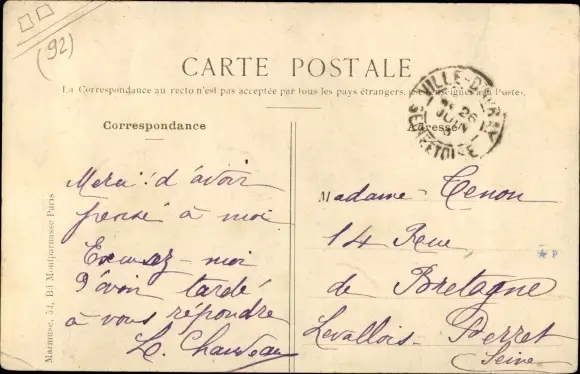 (92)
CARTE POSTALE
La Correspondance au recto n'est pas acceptée par tous les pays étrangers. (Se renseigner à la Poste).
Correspondance
Adresse
VILLE-D'AVRAY
26
JUIN
SEINE-ET-OISE
Merci d'avoir
pensé à moi
Excusez-moi
d'avoir tardé
à vous répondre
L. Chauveau
Madame Tenon
14 Rue
de Bretagne
Levallois-Perret
Seine
Marmuse, 54, Bd Montparnasse Paris